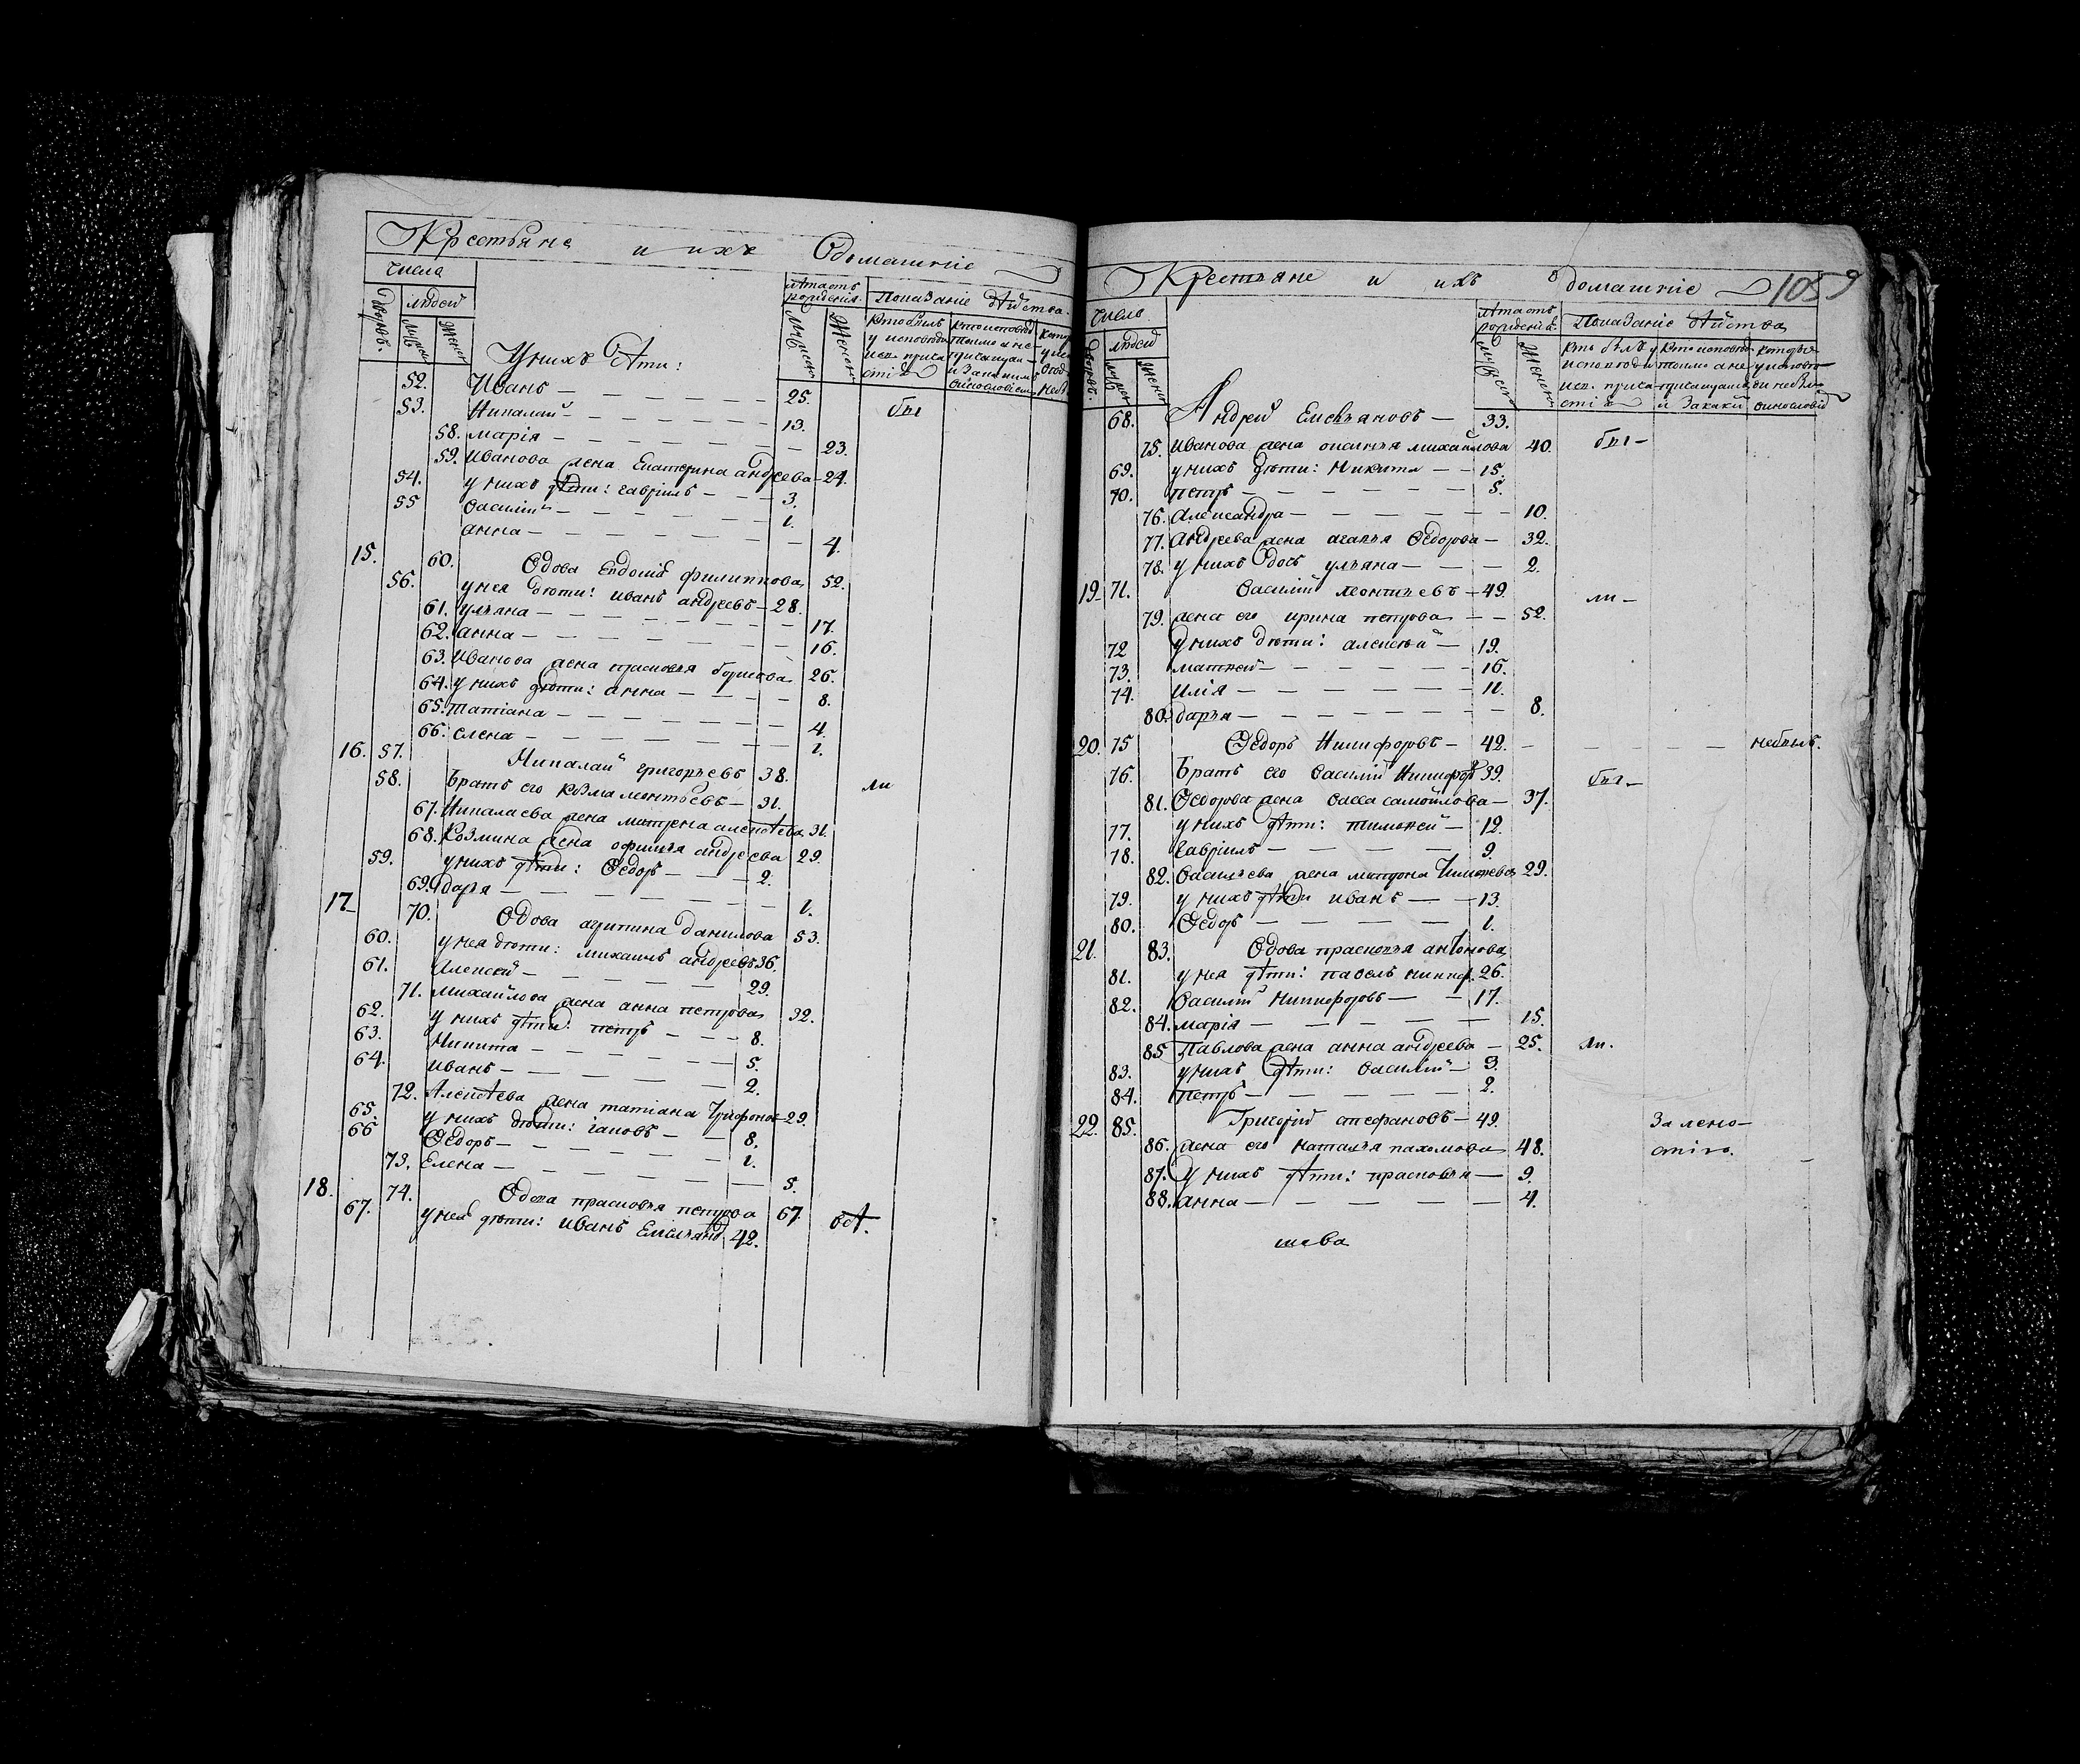 Крестьяне и ихъ домашніе
числа
людей
дворовъ.
мужеск
женск
лѣта отъ рожденія.
Показаніе дѣйства.
мужеск
женск
кто былъ у исповѣди и св. причастія
У нихъ дѣти:
52. Иванъ — 25. бы
53. Николай — 13.
58. марія — 23.
59. Иванова жена Екатерина андреева — 24.
54. у нихъ дѣти: гавріилъ — 3.
55 василій — 1.
анна — 4.
15. 60. Вдова Евдокія филиппова 52.
56. у нея дѣти: иванъ андреевъ — 28.
61. ульяна — 17.
62. анна — 16.
63. Иванова жена прасковья борисова 26.
64. у нихъ дѣти: анна — 8.
65. татіана — 4.
66. елена — 1.
16. 57. Николай григорьевъ 38. ли
58. Братъ его козма леонтьевъ — 31.
67. Николаева жена матрена алексѣева 31.
68. Козмина жена офимья андреева 29.
59. у нихъ дѣти: Ѳедоръ — 2.
69. дарья — 1.
17 70. Вдова агрипина данилова 53.
60. у нея дѣти: михаилъ андреевъ 36.
61. Алексей — 29.
71. михайлова жена анна петрова 32.
62. у нихъ дѣти: петръ — 8.
63. Никита — 5.
64. иванъ — 2.
72. Алексѣева жена татіана Трифонов 29.
65. у нихъ дѣти: іаковъ — 8.
66 Ѳедоръ — 1.
73. Елена — 5.
18. 74. Вдова прасковья петрова 67. всѣ.
67. у нея дѣти: иванъ Емельянов 42.
Крестьяне и ихъ домашніе 1059
число
людей
дворовъ.
мужеск
женск
лѣта отъ рожденія.
Показаніе дѣйства
мужеск
женск
68. Андрей Емельяновъ — 33.
75. иванова жена михайлова 40. бы —
69. у нихъ дѣти: Никита — 15.
70. петръ — 5.
76. Александра — 10.
77. Андреева жена агафья Ѳедорова — 32.
78. у нихъ дочь ульяна — 2.
19 71. василій леонтьевъ — 49. ли —
79. жена его ирина петрова — 52.
72 у нихъ дѣти: алексѣй — 19.
73. матвей — 16.
74. илія — 11.
80. дарья — 8.
20. 75 Ѳедоръ Никифоровъ — 42. — небылъ.
76. Братъ его василій Никифор 39. бы —
81. Ѳедорова жена васса самойлова — 37.
77. у нихъ дѣти: тимофей — 12.
78. гавріилъ — 9.
82. Васильева жена матрона Тимофеева 29.
79. у нихъ дѣти иванъ — 13.
80. Ѳедоръ — 1.
21. 83. Вдова прасковья антонова
81. у нея дѣти: павелъ никиф. 26.
82. Василій Никифоровъ — 17.
84. марія — 15.
85 Павлова жена анна андреева — 25. ли.
83. у нихъ дѣти: василій — 3.
84. петръ — 2.
22. 85. Григорій стефановъ — 49. за лено-
86. жена его наталья пахомова 48. стію.
87. У нихъ дѣти: прасковья — 9.
88. анна — 4.